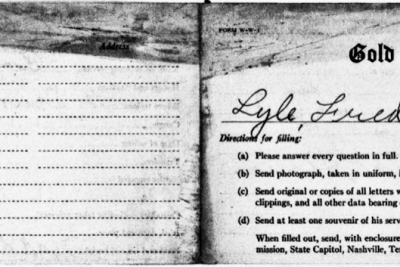 Address
FORM W-W-1
Gold
Lyle, Fred
Directions for filling:
(a) Please answer every question in full.
(b) Send photograph, taken in uniform, i
(c) Send original or copies of all letters w
clippings, and all other data bearing
(d) Send at least one souvenir of his serv
When filled out, send, with enclosure
mission, State Capitol, Nashville, Te